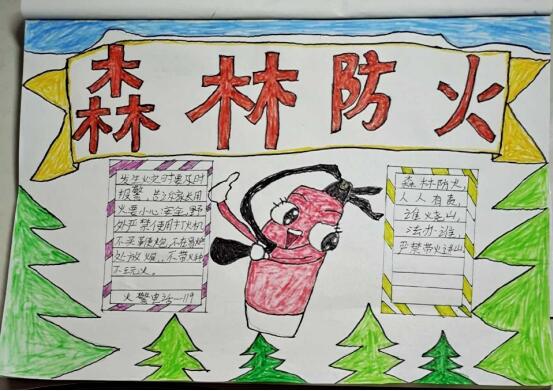 森林防火
发生火灾时要及时
报警,
火要小心安全,野
处严禁使用打火机
不买
处放烟,不带火种
不玩火。
火警电话—119
森林防火
人人有责,
谁火烧山,
法办谁
严禁带火进山